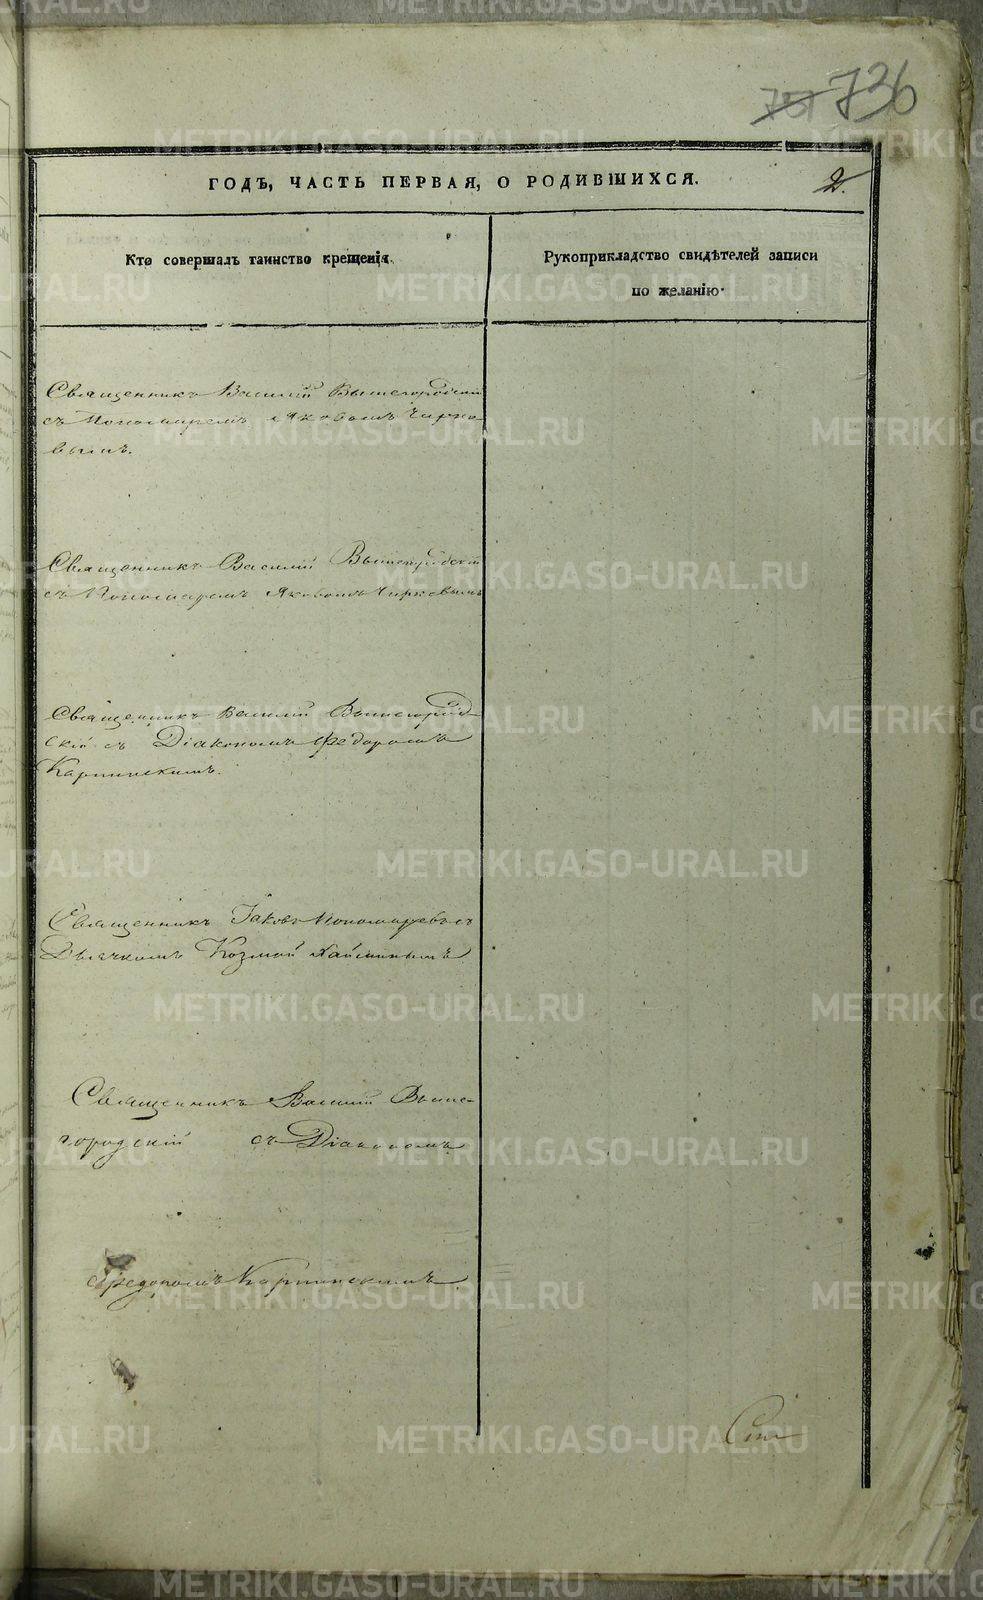 751 736
ГОДЪ, ЧАСТЬ ПЕРВАЯ, О РОДИВШИХСЯ.
2.
Кто совершалъ таинство крещенія.
Рукоприкладство свидѣтелей записи
по желанію.
Священникъ Василій Вышегородскій
съ Пономаремъ Яковомъ Чирко-
вымъ.
Священникъ Василій Вышегородскій
съ Пономаремъ Яковомъ Чирковымъ
Священникъ Василій Вышегород-
скій съ Діакономъ Ѳедоромъ
Карпинскимъ.
Священникъ Іаковъ Пономаревъ съ
Дьячкомъ Козмой
Священникъ Василій Выше-
городскій съ Діакономъ
Карпинскимъ
METRIKI.GASO-URAL.RU